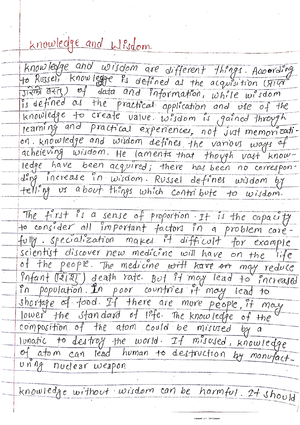 Knowledge and Wisdom
Knowledge and wisdom are different things. According
to Russell, knowledge is defined as the acquisition
of data and information, while wisdom
is defined as the practical application and use of the
knowledge to create value. Wisdom is gained through
learning and practical experiences, not just memorizati-
on. knowledge and wisdom defines the various ways of
achieving wisdom. He laments that though vast know-
ledge have been acquired; there has been no correspon-
ding increase in wisdom. Russel defines wisdom by
telling us about things which contribute to wisdom.
The first is a sense of proportion. It is the capacity
to consider all important factors in a problem care-
fully. specialization makes it difficult for example
scientist discover new medicine will have on the life
of the people. The medicine will have or may reduce
infant death rate. But it may lead to increased
in population. In poor countries it may lead to
shortage of food. If there are more people, it may
lower the standard of life. The knowledge of the
composition of the atom could be misused by a
lunatic to destroy the world. If misused, knowledge
of atom can lead human to destruction by manufact-
uring nuclear weapon.
knowledge without wisdom can be harmful. It should